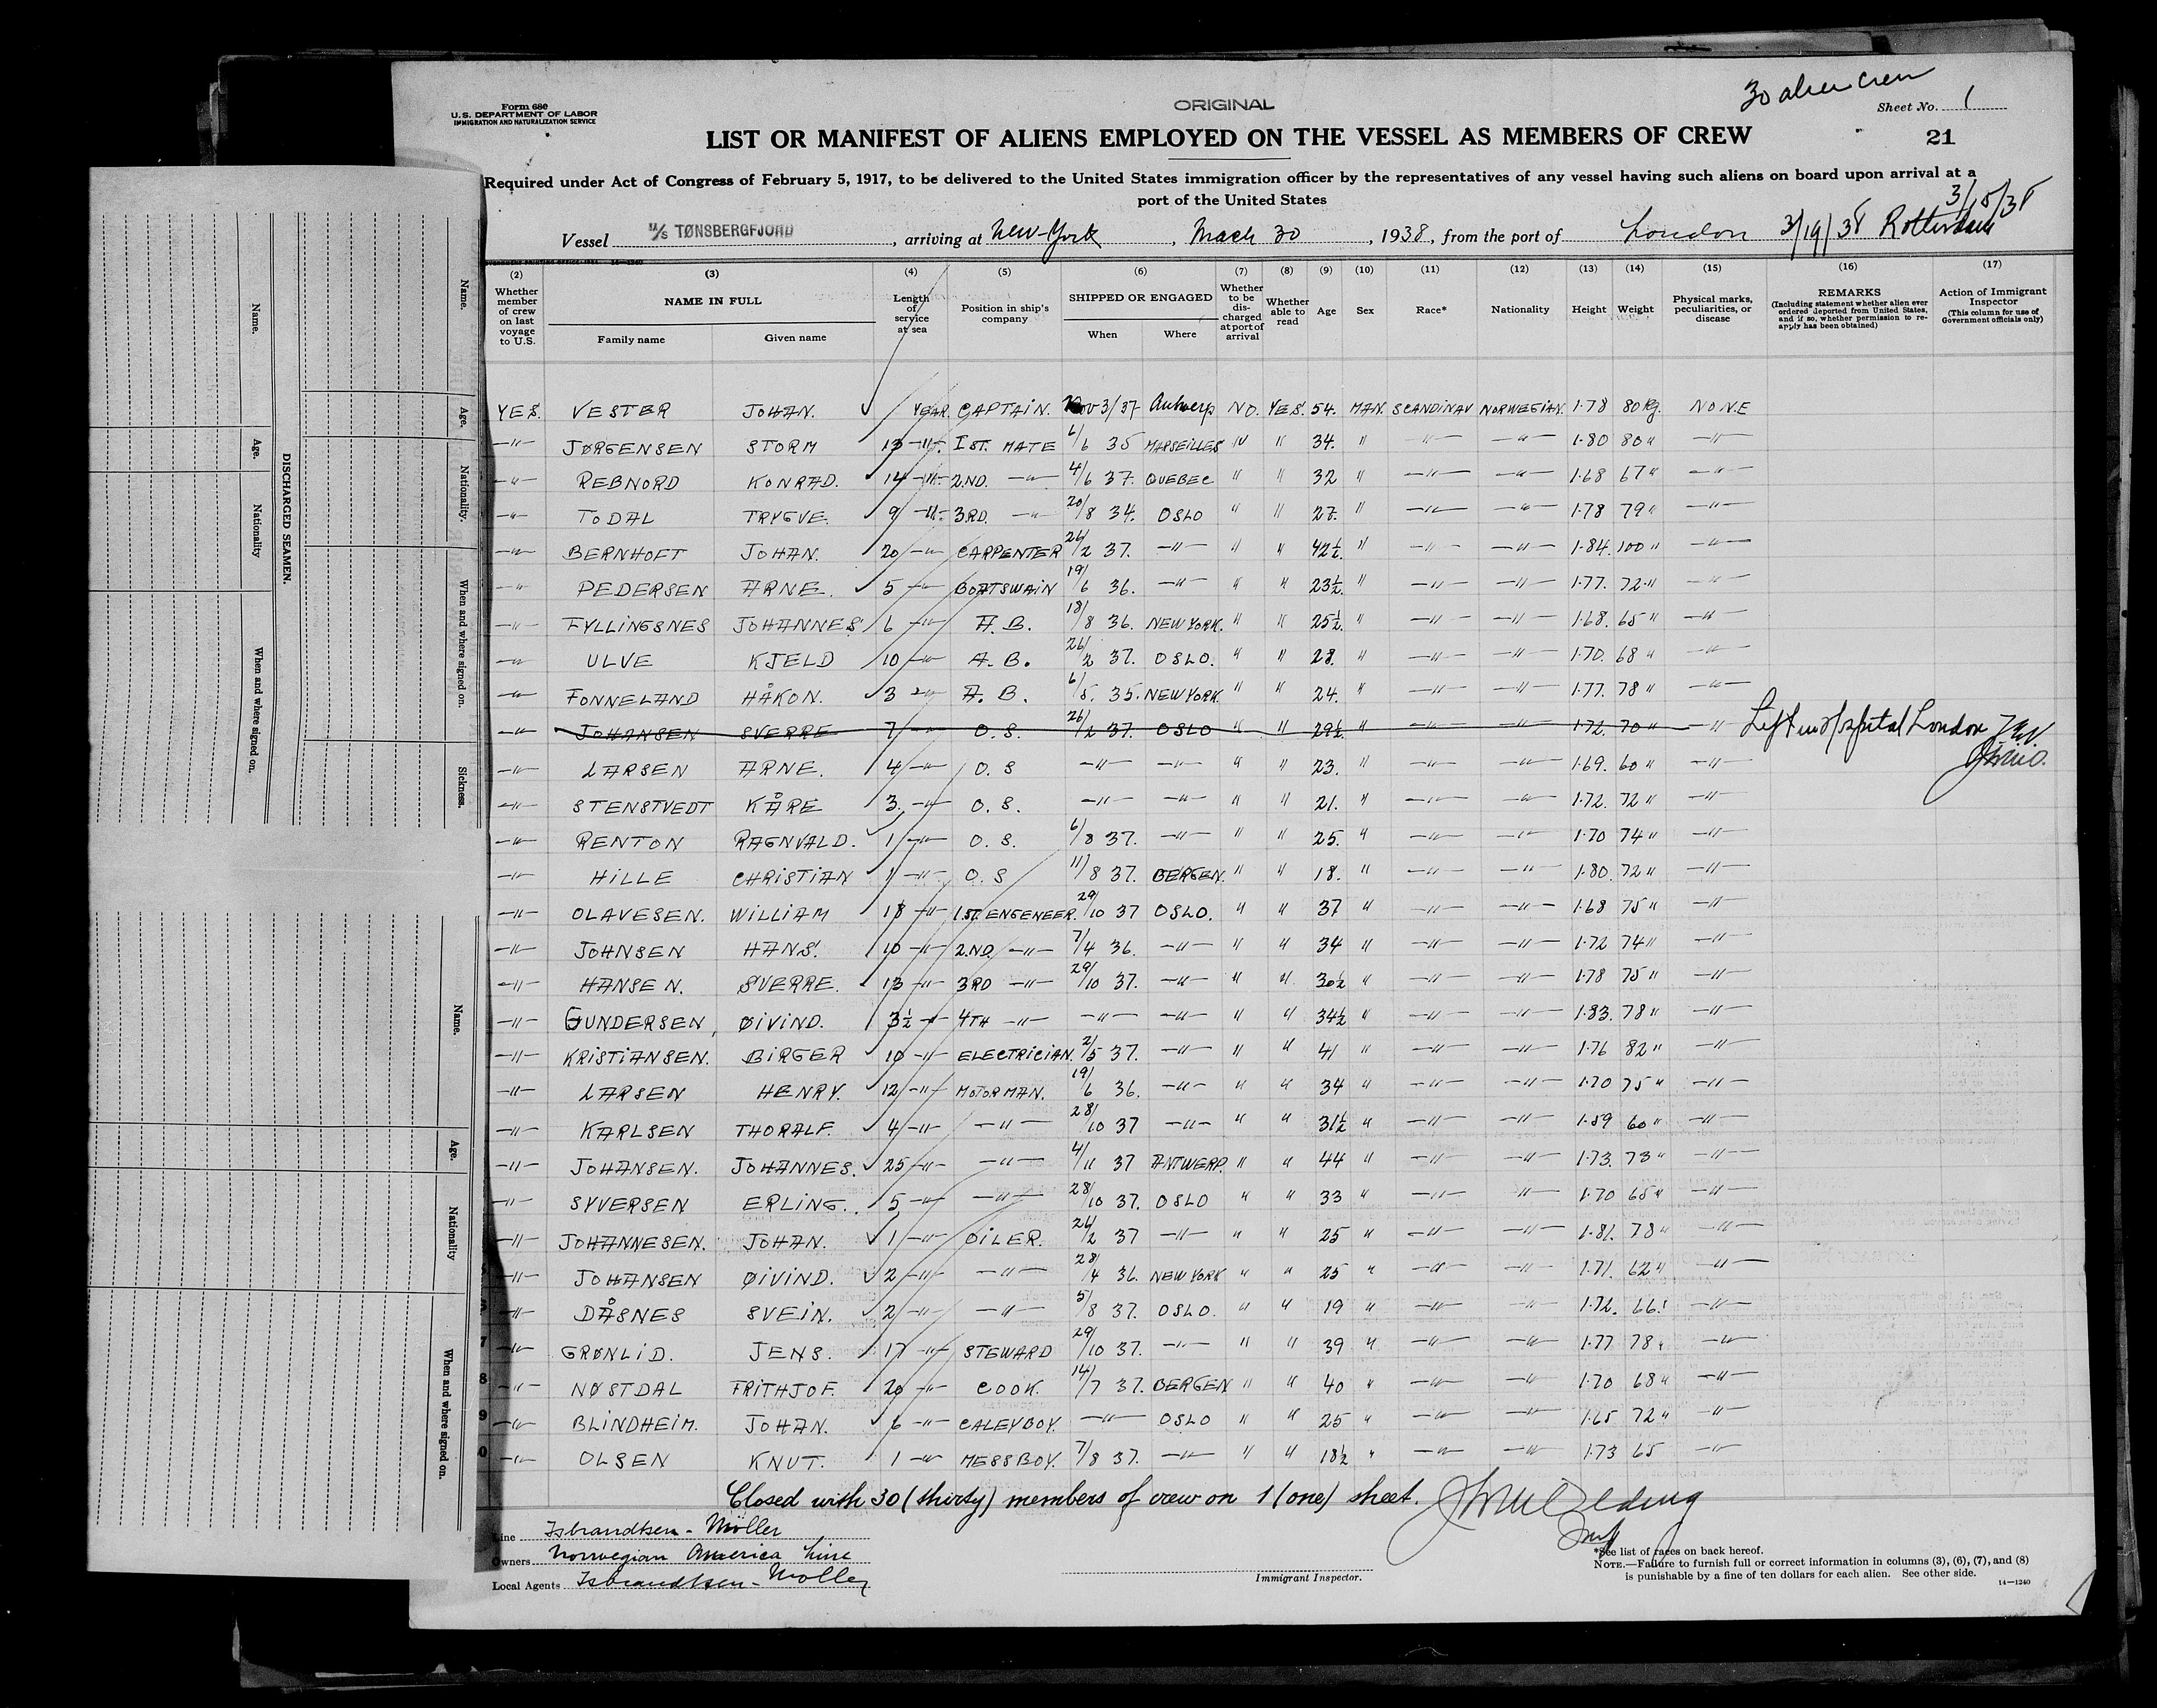 30 alien crew
Form 680
U.S. DEPARTMENT OF LABOR
IMMIGRATION AND NATURALIZATION SERVICE
ORIGINAL
Sheet No. 1
LIST OR MANIFEST OF ALIENS EMPLOYED ON THE VESSEL AS MEMBERS OF CREW
21
Required under Act of Congress of February 5, 1917, to be delivered to the United States immigration officer by the representatives of any vessel having such aliens on board upon arrival at a
port of the United States
3/15/38
Vessel M/S TØNSBERGFJORD, arriving at New-York, Mach 30, 1938, from the port of London 3/19/38 Rotterdam
(2) (3) (4) (5) (6) (7) (8) (9) (10) (11) (12) (13) (14) (15) (16) (17)
Whether member of crew on last voyage to U.S. NAME IN FULL Family name Given name Length of service at sea Position in ship's company SHIPPED OR ENGAGED When Where Whether to be discharged at port of arrival Whether able to read Age Sex Race* Nationality Height Weight Physical marks, peculiarities, or disease REMARKS (Including statement whether alien ever ordered deported from United States, and if so, whether permission to reapply has been obtained) Action of Immigrant Inspector (This column for use of Government officials only)
YES. VESTER JOHAN. ✓ YEAR. CAPTAIN. Nov 3/37 Antwerp NO. YES. 54. MAN. SCANDINAV NORWEGIAN. 1.78 80 Kg. NONE
-"- JØRGENSEN STORM 13 -"- 1ST. MATE 6/6 35 MARSEILLES " " 34. " -"- -"- 1.80 80 " -"-
-"- REBNORD KONRAD. ✓ 14 -"- 2.ND. -"- 4/6 37. QUEBEC " " 32 " -"- -"- 1.68 67 " -"-
-"- TODAL TRYGVE. 9 -"- 3RD. -"- 20/8 34. OSLO " " 27. " -"- -"- 1.78 79 " -"-
-"- BERNHOFT JOHAN. 20 -"- CARPENTER 26/2 37. -"- " " 42½. " -"- -"- 1.84. 100 " -"-
-"- PEDERSEN ARNE. ✓ 5 -"- BOATSWAIN 19/6 36. -"- " " 23½. " -"- -"- 1.77. 72 " -"-
-"- FYLLINGSNES JOHANNES 6 -"- A.B. 18/8 36. NEW YORK. " " 25½. " -"- -"- 1.68. 65 " -"-
-"- ULVE KJELD 10 -"- A.B. 26/2 37. OSLO. " " 28. " -"- -"- 1.70. 68 " -"-
-"- FONNELAND HÅKON. ✓ 3 -"- A.B. 6/5. 35. NEW YORK. " " 24. " -"- -"- 1.77. 78 " -"-
-"- JOHANSEN SVERRE 7 -"- O.S. 26/2 37. OSLO " " 29½ " -"- -"- 1.72. 70 " -"- Left in Hospital London
-"- LARSEN ARNE. 4 -"- O.S -"- -"- " " 23. " -"- -"- 1.69. 60 " -"-
-"- STENSTVEDT KÅRE 3. -"- O.S. -"- -"- " " 21. " -"- -"- 1.72. 72 " -"-
-"- RENTON RAGNVALD. ✓ 1 -"- O.S. 6/8 37. -"- " " 25. " -"- -"- 1.70 74 " -"-
-"- HILLE CHRISTIAN ✓ 1 -"- O.S 11/8 37. BERGEN. " " 18. " -"- -"- 1.80. 72 " -"-
-"- OLAVESEN. WILLIAM 18 -"- 1ST. ENGENEER. 29/10 37 OSLO. " " 37 " -"- -"- 1.68 75 " -"-
-"- JOHNSEN HANS. 10 -"- 2.ND. -"- 7/4 36. -"- " " 34 " -"- -"- 1.72 74 " -"-
-"- HANSEN. SVERRE. 13 -"- 3RD -"- 29/10 37. -"- " " 30½ " -"- -"- 1.78 75 " -"-
-"- GUNDERSEN, ØIVIND. 3½ -"- 4TH -"- -"- -"- " " 34½ " -"- -"- 1.83. 78 " -"-
-"- KRISTIANSEN. BIRGER ✓ 10 -"- ELECTRICIAN. 2/5 37. -"- " " 41 " -"- -"- 1.76 82 " -"-
-"- LARSEN HENRY. ✓ 12 -"- MOTORMAN. 19/6 36. -"- " " 34 " -"- -"- 1.70 75 " -"-
-"- KARLSEN THORALF. ✓ 4 -"- -"- 28/10 37 -"- " " 31½ " -"- -"- 1.59 60 " -"-
-"- JOHANSEN. JOHANNES. ✓ 25 -"- -"- 4/11 37 ANTWERP. " " 44 " -"- -"- 1.73. 73 " -"-
-"- SYVERSEN ERLING. 5 -"- -"- 28/10 37. OSLO " " 33 " -"- -"- 1.70 65 " -"-
-"- JOHANNESEN. JOHAN. ✓ 1 -"- OILER. 26/2 37 -"- " " 25 " -"- -"- 1.81. 78 " -"-
-"- JOHANSEN ØIVIND. ✓ 2 -"- -"- 28/4 36. NEW YORK " " 25 " -"- -"- 1.71. 62 " -"-
-"- DÅSNES SVEIN. ✓ 2 -"- -"- 5/8 37. OSLO. " " 19 " -"- -"- 1.72. 66. -"-
7 -"- GRØNLID. JENS. ✓ 17 -"- STEWARD 29/10 37. -"- " " 39 " -"- -"- 1.77 78 " -"-
8 -"- NØSTDAL FRITHJOF. ✓ 20 -"- COOK. 14/7 37. BERGEN " " 40 " -"- -"- 1.70 68 " -"-
9 -"- BLINDHEIM. JOHAN. ✓ 6 -"- CALEYBOY. -"- OSLO " " 25 " -"- -"- 1.65 72 " -"-
0 -"- OLSEN KNUT. 1 -"- MESSBOY. 7/8 37. -"- " " 18½ " -"- -"- 1.73 65 -"-
Closed with 30 (thirty) members of crew on 1 (one) sheet.
Line Isbrandtsen - Möller
Owners Norwegian America Line
Local Agents Isbrandtsen - Moller
Immigrant Inspector.
*See list of races on back hereof.
NOTE.—Failure to furnish full or correct information in columns (3), (6), (7), and (8)
is punishable by a fine of ten dollars for each alien. See other side.
14—1240
DISCHARGED SEAMEN.
Name.
Age.
Nationality
When and where signed on.
Name.
Age.
Nationality.
When and where signed on.
Sickness.
Name.
Age.
Nationality
When and where signed on.